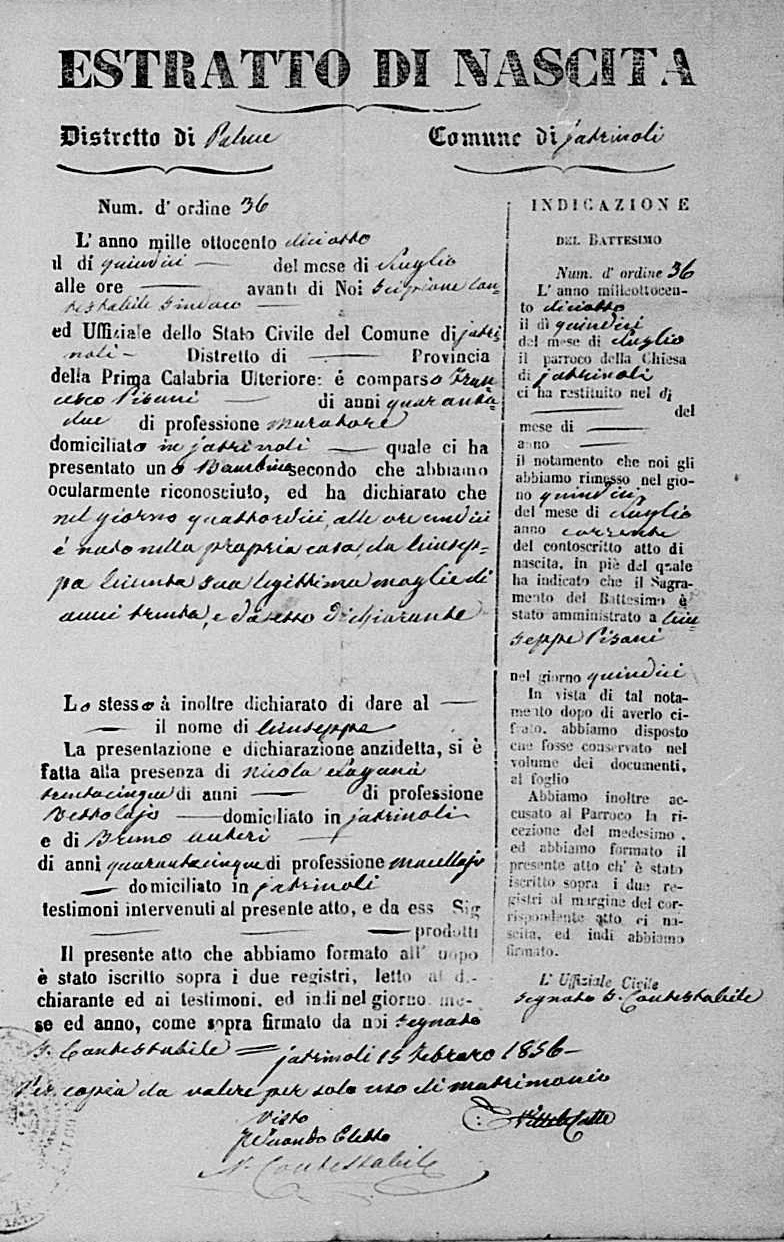 ESTRATTO DI NASCITA
Distretto di Palme
Comune di Jatrinoli
Num. d' ordine 36
L' anno mille ottocento diciotto
il dì quindici — del mese di Luglio
alle ore — avanti di Noi Scipione Con-
testabile Sindaco —
ed Uffiziale dello Stato Civile del Comune di Jatri-
noli — Distretto di — Provincia
della Prima Calabria Ulteriore: é comparso Fran-
cesco Pisani — di anni quaranta-
due di professione Muratore
domiciliato in Jatrinoli — quale ci ha
presentato uno Bambino secondo che abbiamo
ocularmente riconosciuto, ed ha dichiarato che
nel giorno quattordici, alle ore undici
é nato nella propria casa, da Giusep-
pa Giunta sua legittima moglie di
anni trenta, e da esso Dichiarante
Lo stesso à inoltre dichiarato di dare al —
— il nome di Giuseppe
La presentazione e dichiarazione anzidetta, si è
fatta alla presenza di Nicola Laganà
trentacinque di anni — di professione
— domiciliato in Jatrinoli
e di Bruno Auteri —
di anni quarantacinque di professione Macellajo
— domiciliato in Jatrinoli
testimoni intervenuti al presente atto, e da ess Sig
— — — prodotti
Il presente atto che abbiamo formato all' uopo
è stato iscritto sopra i due registri, letto al di-
chiarante ed ai testimoni, ed indi nel giorno, me-
se ed anno, come sopra firmato da noi segnato
S. Contestabile = Jatrinoli 15 Febraro 1856 —
Per copia da valere per solo uso di matrimonio
Visto
Il Secondo Eletto
N. Contestabile
INDICAZIONE
DEL BATTESIMO
Num. d' ordine 36
L' anno milleottocen-
to diciotto
il dì quindici
del mese di Luglio
il parroco della Chiesa
di Jatrinoli
ci ha restituito nel dì
— del
mese di —
anno —
il notamento che noi gli
abbiamo rimesso nel gior-
no quindici
del mese di Luglio
anno corrente
del contoscritto atto di
nascita, in piè del quale
ha indicato che il Sagra-
mento del Battesimo è
stato amministrato a Giu-
seppe Pisani
nel giorno quindici
In vista di tal nota-
mento dopo di averlo ci-
frato, abbiamo disposto
che fosse conservato nel
volume dei documenti,
al foglio
Abbiamo inoltre ac-
cusato al Parroco la ri-
cezione del medesimo,
ed abbiamo formato il
presente atto ch' è stato
iscritto sopra i due re-
gistri al margine del cor-
rispondente atto di na-
scita, ed indi abbiamo
firmato.
L' Uffiziale Civile
Segnato S. Contestabile